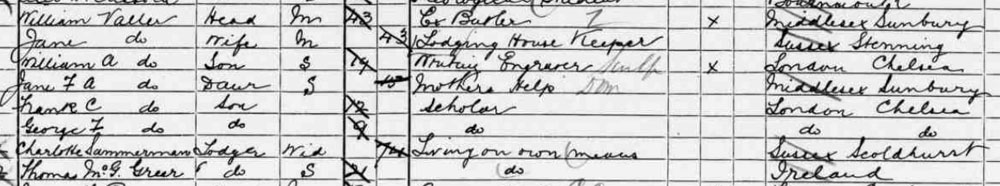 William Valler Head M 43 Ex Butler x Middlesex Sunbury
Jane do Wife M 43 Lodging House Keeper Sussex Stenning
William A do Son S 19 Engraver x London Chelsea
Jane F A do Daur S 15 Mothers Help Dom Middlesex Sunbury
Frank C do Son 12 Scholar London Chelsea
George F do do 9 do do do
Charlotte Sammerman Lodger Wid 74 Living on own means Sussex Scoldhurst
Thomas McG. Greer do S 21 do Ireland